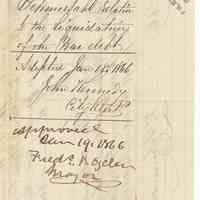 Relation
to the liquidation
of the War debt
Adopted Jan 15th 1866
John Kennedy
City Clerk
Approved
Jan 19. 1866
Fred S.
Mayor